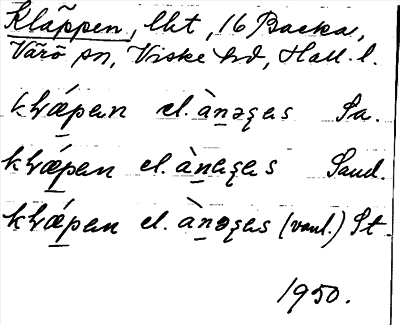 Kläppen, lht, 16 Backa,
Värö sn, Viske hd, Hall. l.
kḷǽpan el. ànəgas Sa.
kḷǽpan el. ànagas Sand.
kḷǽpan el. ànəgas (vanl.) St
1950.